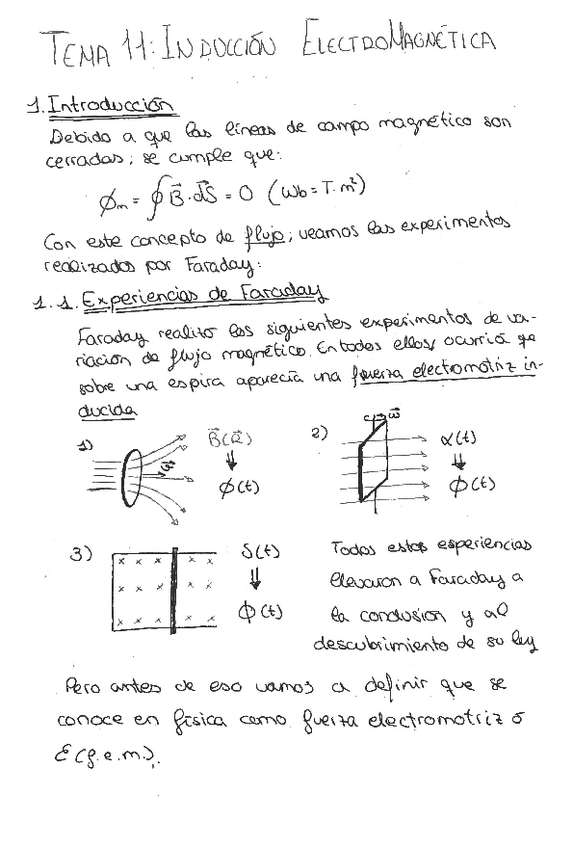 TEMA 11: INDUCCIÓN ELECTROMAGNÉTICA
1. Introducción
Debido a que las líneas de campo magnético son
cerradas; se cumple que:
ϕm = ∮ B⃗ · dS⃗ = 0 (Wb = T·m²)
Con este concepto de flujo; veamos las experimentos
realizados por Faraday:
1.1. Experiencias de Faraday
Faraday realizó los siguientes experimentos de va-
riación de flujo magnético. En todos ellos ocurría qe
sobre una espira aparecía una fuerza electromotriz in-
ducida
1) B⃗(r⃗) ⇓ ϕ(t)
2) ω⃗ α(t) ⇓ ϕ(t)
3) S(t) ⇓ ϕ(t)
Todas estas esperiencias
llevaron a Faraday a
la conclusión y al
descubrimiento de su ley
Pero antes de eso vamos a definir que se
conoce en física como fuerza electromotriz ó
ε (f.e.m.).